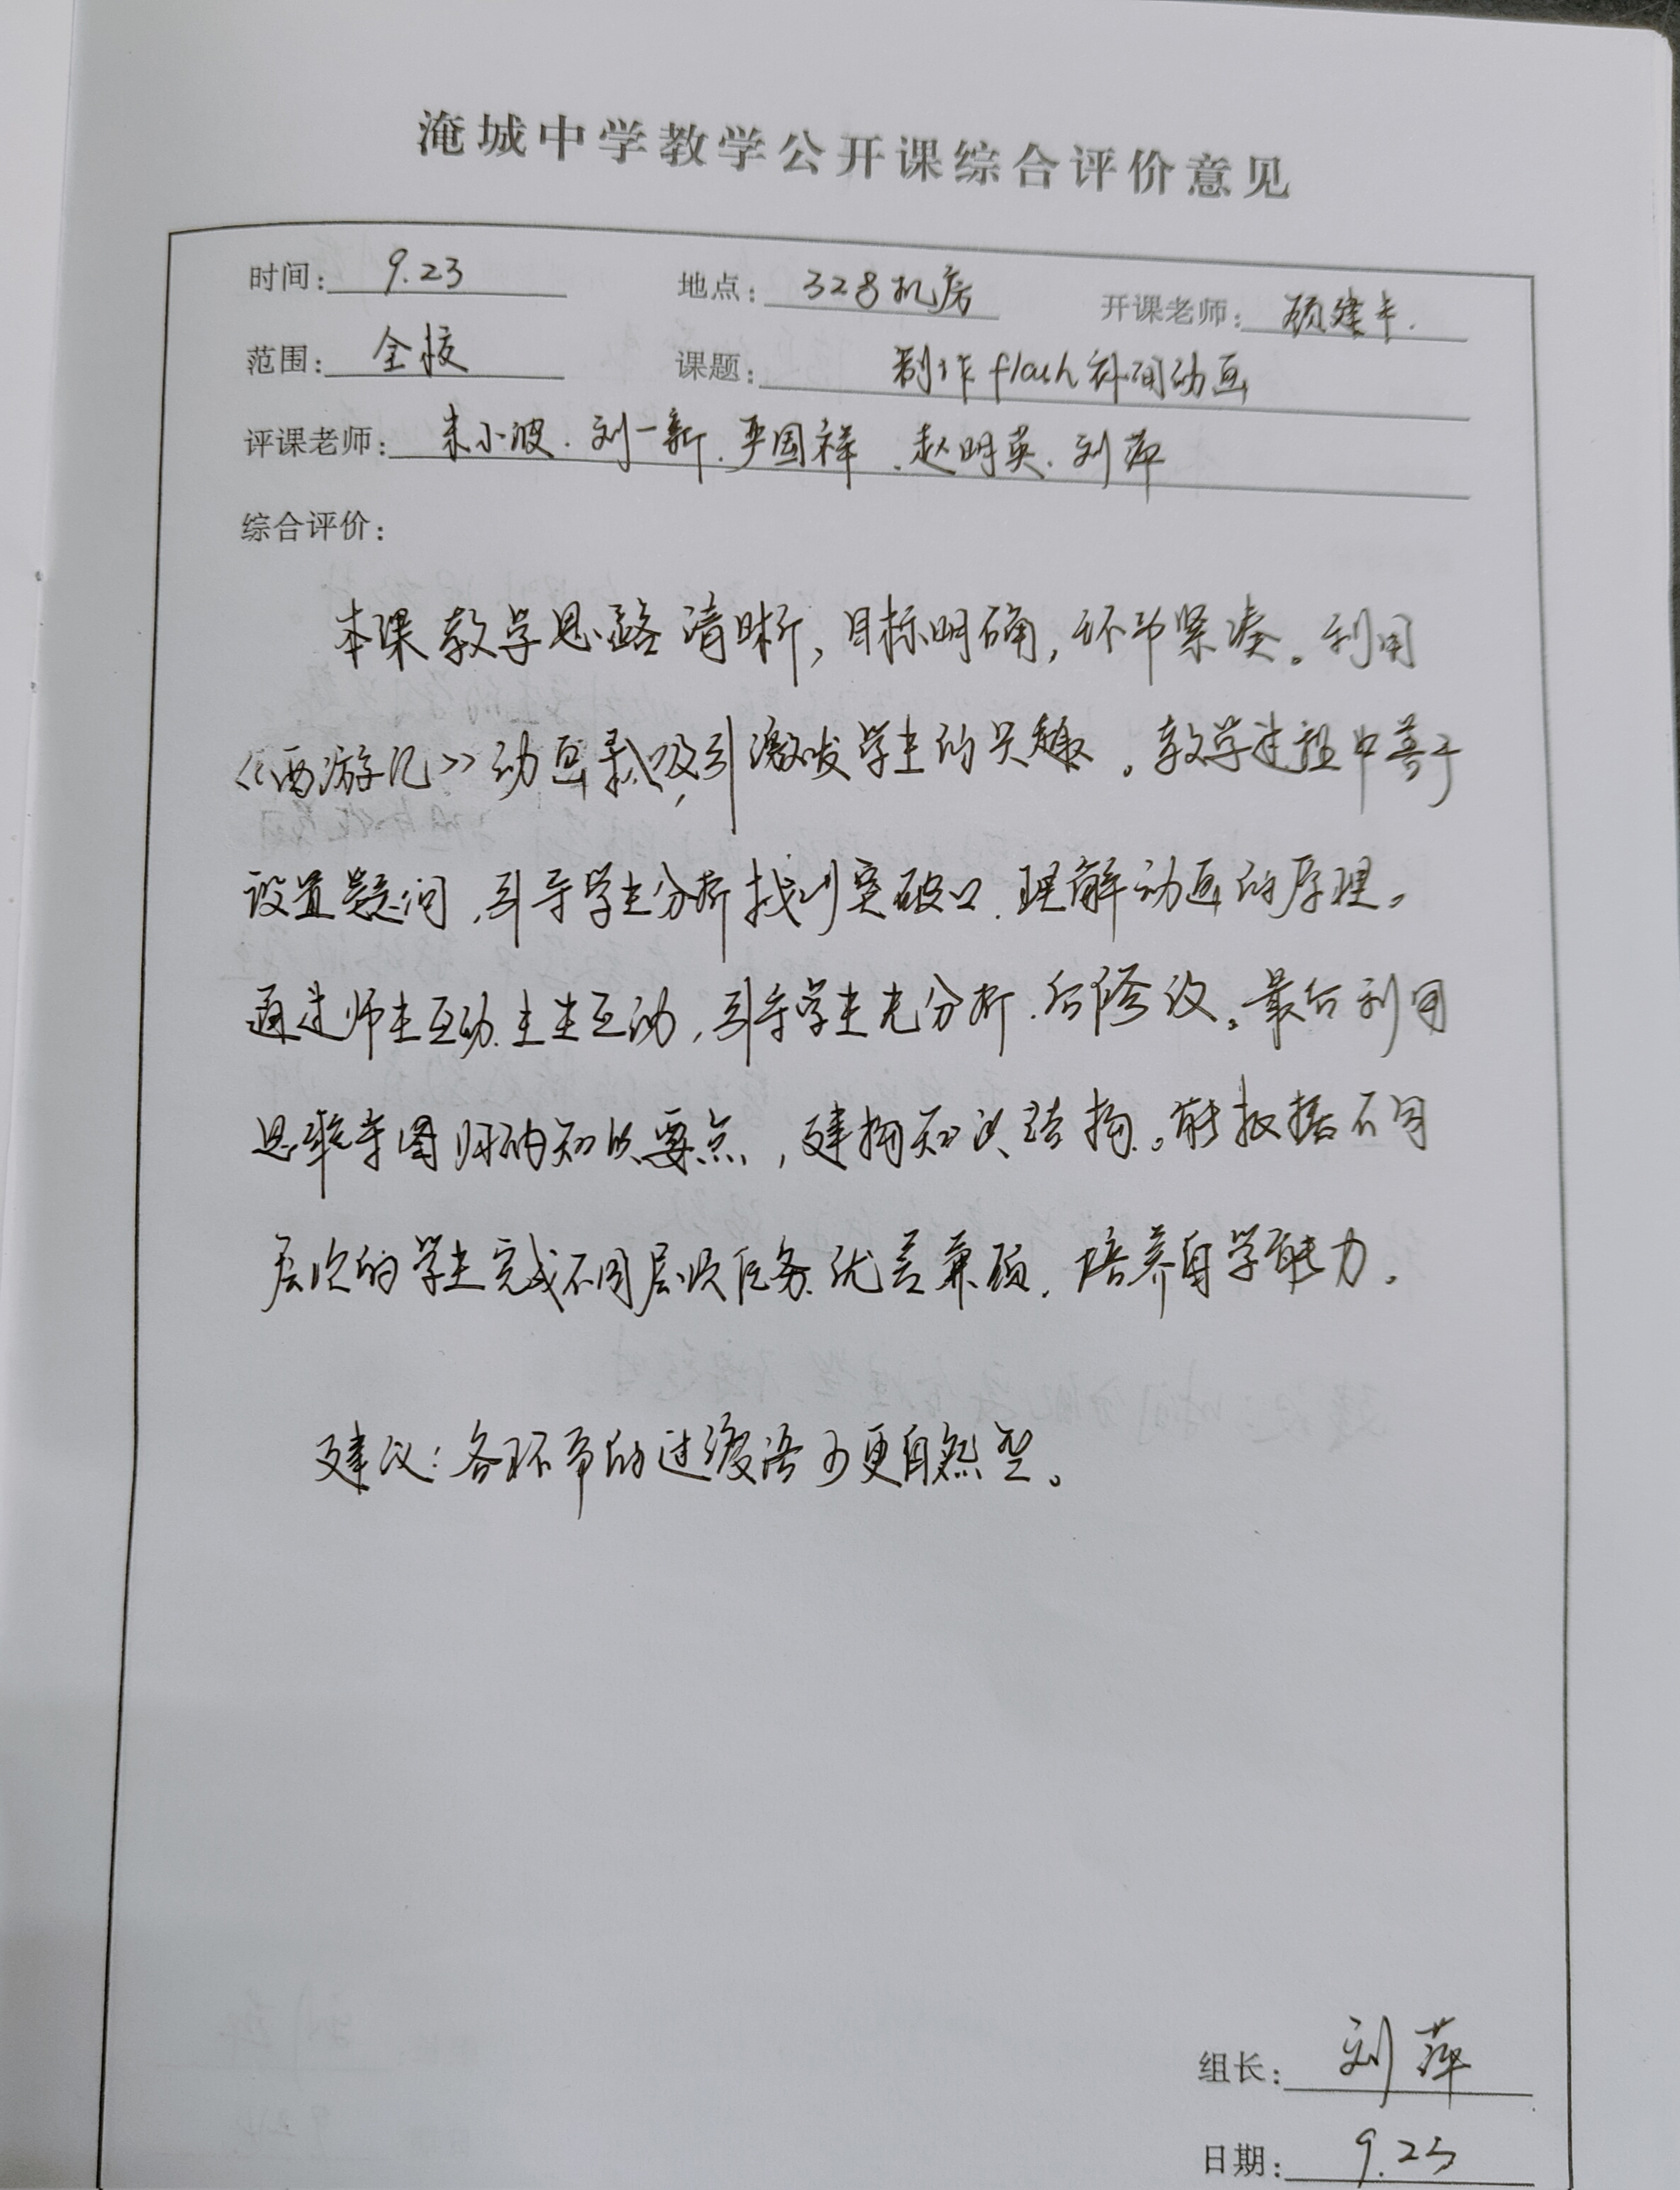 淹城中学教学公开课综合评价意见
时间： 9.23 地点： 328机房 开课老师： 顾建丰.
范围： 全校 课题： 制作flash补间动画
评课老师： 朱小波. 刘一新. 严国祥. 赵明英. 刘萍
综合评价：
本课教学思路清晰，目标明确，环节紧凑。利用
《西游记》动画 吸引激发学生的兴趣。教学过程中善于
设置疑问，引导学生分析找到突破口.理解动画的原理。
通过师生互动.生生互动，引导学生先分析.后修改。最后利用
思维导图归纳知识要点，建构知识结构。能根据不同
层次的学生完成不同层次任务.优差兼顾.培养自学能力。
建议：各环节的过渡语可更自然些。
组长： 刘萍
日期： 9.23